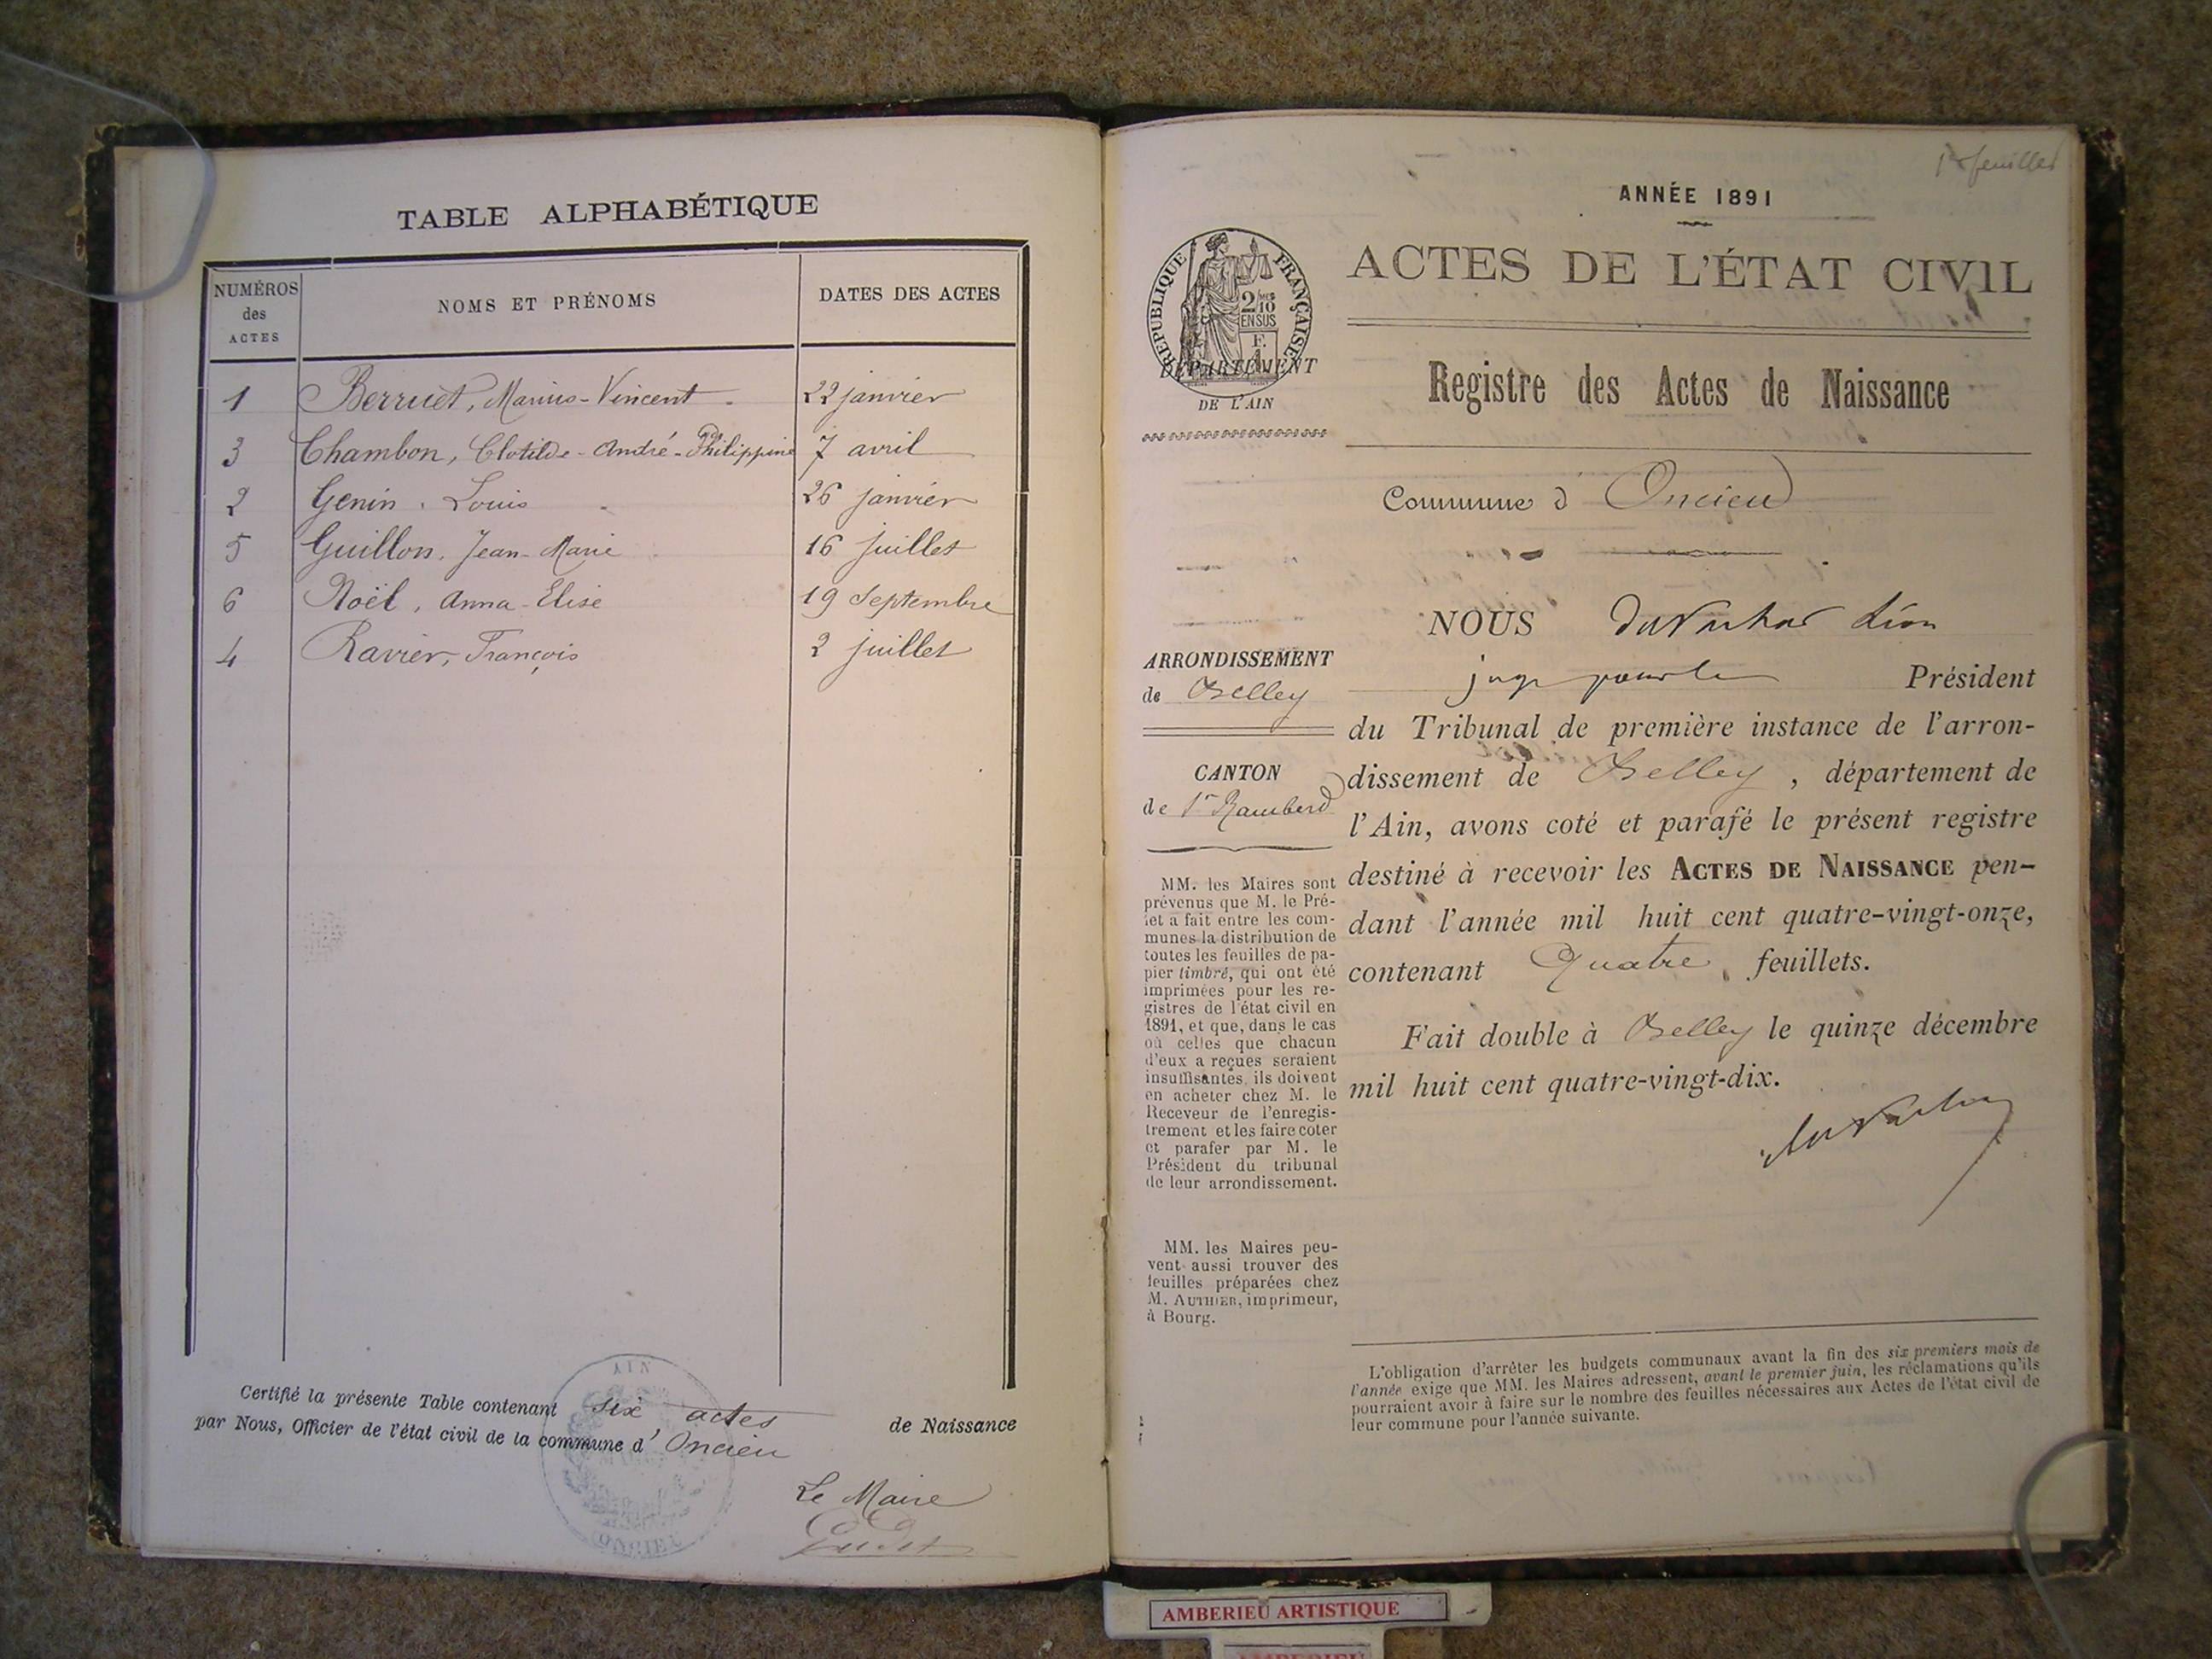 TABLE ALPHABÉTIQUE
NUMÉROS des ACTES NOMS ET PRÉNOMS DATES DES ACTES
1 Berruet, Marius-Vincent 22 janvier
3 Chambon, Clotilde-André-Philippine 7 avril
2 Genin, Louis 26 janvier
5 Guillon, Jean-Marie 16 juillet
6 Noël, Anna-Elise 19 Septembre
4 Ravier, François 2 juillet
Certifié la présente Table contenant six actes de Naissance
par Nous, Officier de l'état civil de la commune d'Oncieu
AIN
ONCIEU
Le Maire
1er feuillet
ANNÉE 1891
RÉPUBLIQUE FRANÇAISE
2/10
EN SUS
F.
1
DÉPARTEMENT
DE L'AIN
ACTES DE L'ÉTAT CIVIL
Registre des Actes de Naissance
Commune d'Oncieu
ARRONDISSEMENT
de Belley
CANTON
de St Rambert
MM. les Maires sont
prévenus que M. le Pré-
fet a fait entre les com-
munes la distribution de
toutes les feuilles de pa-
pier timbré, qui ont été
imprimées pour les re-
gistres de l'état civil en
1891, et que, dans le cas
où celles que chacun
d'eux a reçues seraient
insuffisantes, ils doivent
en acheter chez M. le
Receveur de l'enregis-
trement et les faire coter
et parafer par M. le
Président du tribunal
de leur arrondissement.
MM. les Maires peu-
vent aussi trouver des
feuilles préparées chez
M. AUTHIER, imprimeur,
à Bourg.
NOUS Léon
juge pour le Président
du Tribunal de première instance de l'arron-
dissement de Belley, département de
l'Ain, avons coté et parafé le présent registre
destiné à recevoir les ACTES DE NAISSANCE pen-
dant l'année mil huit cent quatre-vingt-onze,
contenant Quatre feuillets.
Fait double à Belley le quinze décembre
mil huit cent quatre-vingt-dix.
L'obligation d'arrêter les budgets communaux avant la fin des six premiers mois de
l'année exige que MM. les Maires adressent, avant le premier juin, les réclamations qu'ils
pourraient avoir à faire sur le nombre des feuilles nécessaires aux Actes de l'état civil de
leur commune pour l'année suivante.
AMBERIEU ARTISTIQUE
AMBERIEU